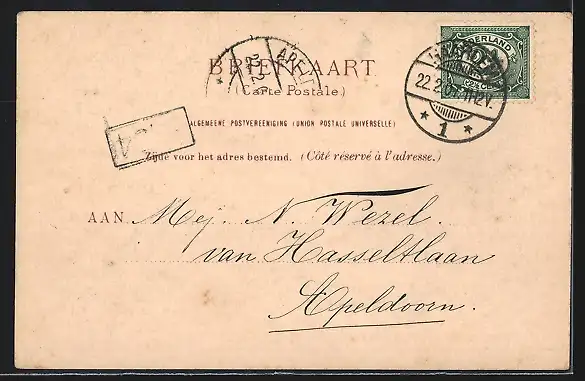 BRIEFKAART
(Carte Postale.)
ALGEMEENE POSTVEREENIGING (UNION POSTALE UNIVERSELLE)
Zijde voor het adres bestemd. (Côté réservé à l'adresse.)
NEDERLAND
22.2
1
AAN Mej. N. Wezel.
van Hasseltlaan
Apeldoorn.